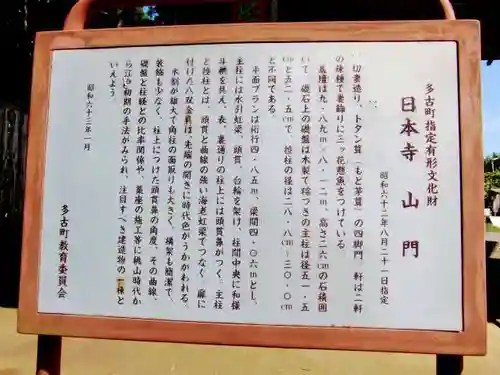 多古町指定有形文化財
昭和六十二年八月二十一日指定
日本寺　山門
切妻造り、トタン葺（もと茅葺）の四脚門　軒は二軒
の疎棰で妻飾りに三ッ花懸魚をつけている。
基壇は九・八九m×八・一二m、高さ二六cmの石積囲
いで、礎石上の礎盤は木製で粽つきの主柱は径五一・五
cmと五二・五cmで、控柱の径は二八・八cm〜三〇・〇cm
と不同である。
平面プランは桁行四・八五m、梁間四・〇六mとし、
主柱には水引虹梁、頭貫、台輪を架け、柱間中央に和様
斗栱を具え、表、裏通りの柱上には頭貫鼻がつく。主柱
と控柱とは、頭貫と曲線の強い海老虹梁でつなぐ　扉に
付けた八双金具は、先端の開きに時代色がうかがわれる。
木割が雄大で角柱の面取りも大きく、構架も簡潔で、
装飾も少なく、柱上につけた頭貫鼻の角度、その曲線、
礎盤と柱径との比率関係や、藁座の施工等に桃山時代か
ら江戸初期の手法がみられ、注目すべき建造物の一棟と
いえよう。
昭和六十三年一月
多古町教育委員会